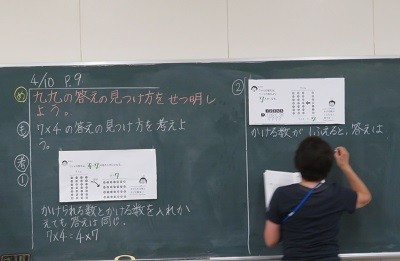 4/10 P.9
め 九九の答えの見つけ方をせつ明し
よう。
も 7×4の答えの見つけ方を考えよ
う。
考
①
かけられる数とかける数を入れか
えても答えは同じ。
7×4=4×7
②
かける数が1ふえると、答えは